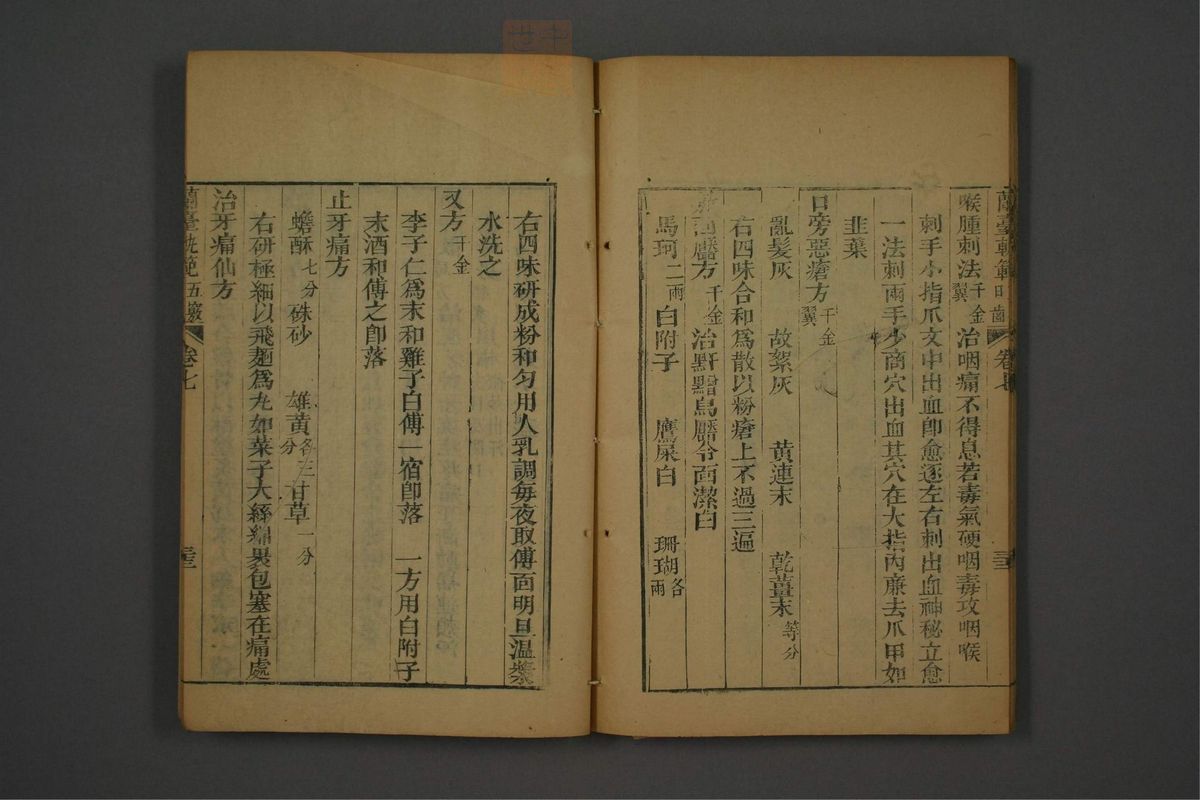 蘭臺軌範 口齒 卷七 三十三
喉腫刺法 千金翼 治咽痛不得息若毒氣硬咽毒攻咽喉
刺手小指爪文中出血卽愈逐左右刺出血神秘立愈
一法刺兩手少商穴出血其穴在大指內廉去爪甲如
韭葉
口旁惡瘡方 千金翼
亂髮灰 故絮灰 黃連末 乾薑末 等分
右四味合和爲散以粉瘡上不過三遍
靨方 千金 治䵟䵳烏靨令面潔白
馬珂 二兩 白附子 鷹屎白 珊瑚 各兩
右四味研成粉和勻用人乳調每夜取傅面明旦溫漿
水洗之
又方 千金
李子仁爲末和雞子白傅一宿卽落 一方用白附子
末酒和傅之卽落
止牙痛方
蟾酥 七分 硃砂 雄黃 各三分 甘草 一分
右研極細以飛麵爲丸如菜子大絲綿裹包塞在痛處
治牙痛仙方
蘭臺軌範 卷七 三十三